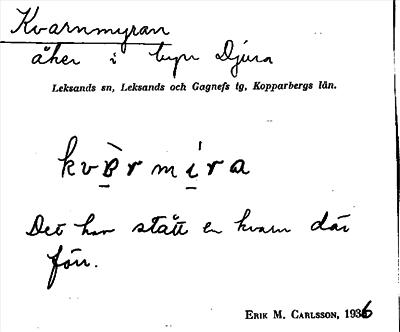 Kvarnmyran
åker i byn Djura
Leksands sn, Leksands och Gagnefs tg, Kopparbergs län.
kvèrmíra
Det har stått en kvarn där
förr.
ERIK M. CARLSSON, 1936